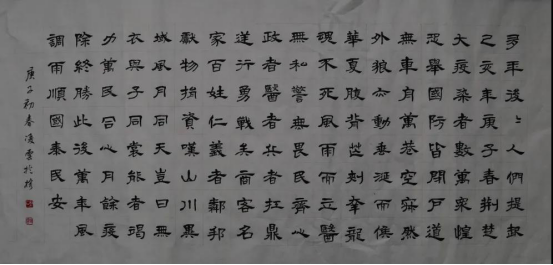 多年後〻人們提起
己亥年庚子春荆楚
大疫染者數萬眾惶
恐舉國防皆閉戶道
無車舟萬巷空寂然
外狼亦動垂涎而候
華夏腹背芒刺孿龍
魂不死風雨而立醫
無私警無畏民齊心
政者醫者兵者扛鼎
逆行勇戰矣商客名
家百姓仁義者鄰邦
獻物捐資嘆山川異
域風月同天豈曰無
衣與子同裳能者竭
力萬民合心月餘疫
除終勝此後萬年風
調雨順國泰民安
庚子初春凌雲於